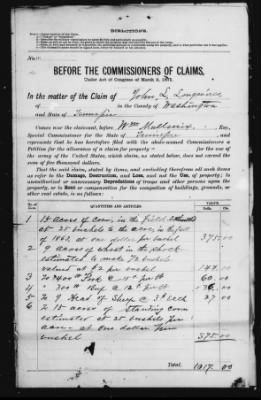 DIRECTIONS.
BEFORE THE COMMISSIONERS OF CLAIMS.
Under Act of Congress of March 3, 1871.
In the matter of the Claim of John
of in the County of Washington
and State of Tennessee
Comes now the claimant, before Wm Mullenix, Esq.,
Special Commissioner for the State of Tennessee, and
represents that he has heretofore filed with the above-named Commissioners a
Petition for the allowance of a claim for property for the use of
the army of the United States, which claim, as stated below, does not exceed the
sum of five thousand dollars.
That the said claim, stated by items, and excluding therefrom all such items
as refer to the Damage, Destruction, and Loss, and not the Use, of property; to
unauthorized or unnecessary Depredations by troops and other persons upon the
property, or to Rent or compensation for the occupation of buildings, grounds, or
other real estate, is as follows:
No. of Item. QUANTITIES AND ARTICLES. VALUE. Dolls. Cts.
1 15 acres of corn in the field estimated
at 25 bushels to the acre, in the fall
of 1863 at one dollar per bushel 375.00
2 9 acres of wheat in the
estimated to make 72 bushels
valued at $2 per bushel 144.00
3 To 400 lbs Pork @ 60.00
4 " 300 lbs Beef @ 12 36.00
5 To 9 Head of Sheep @ 3 each 27 00
6 To 15 acres of standing corn
estimated at 25 bushels per
acre at one dollar per
bushel 375.00
Total, 1017.00